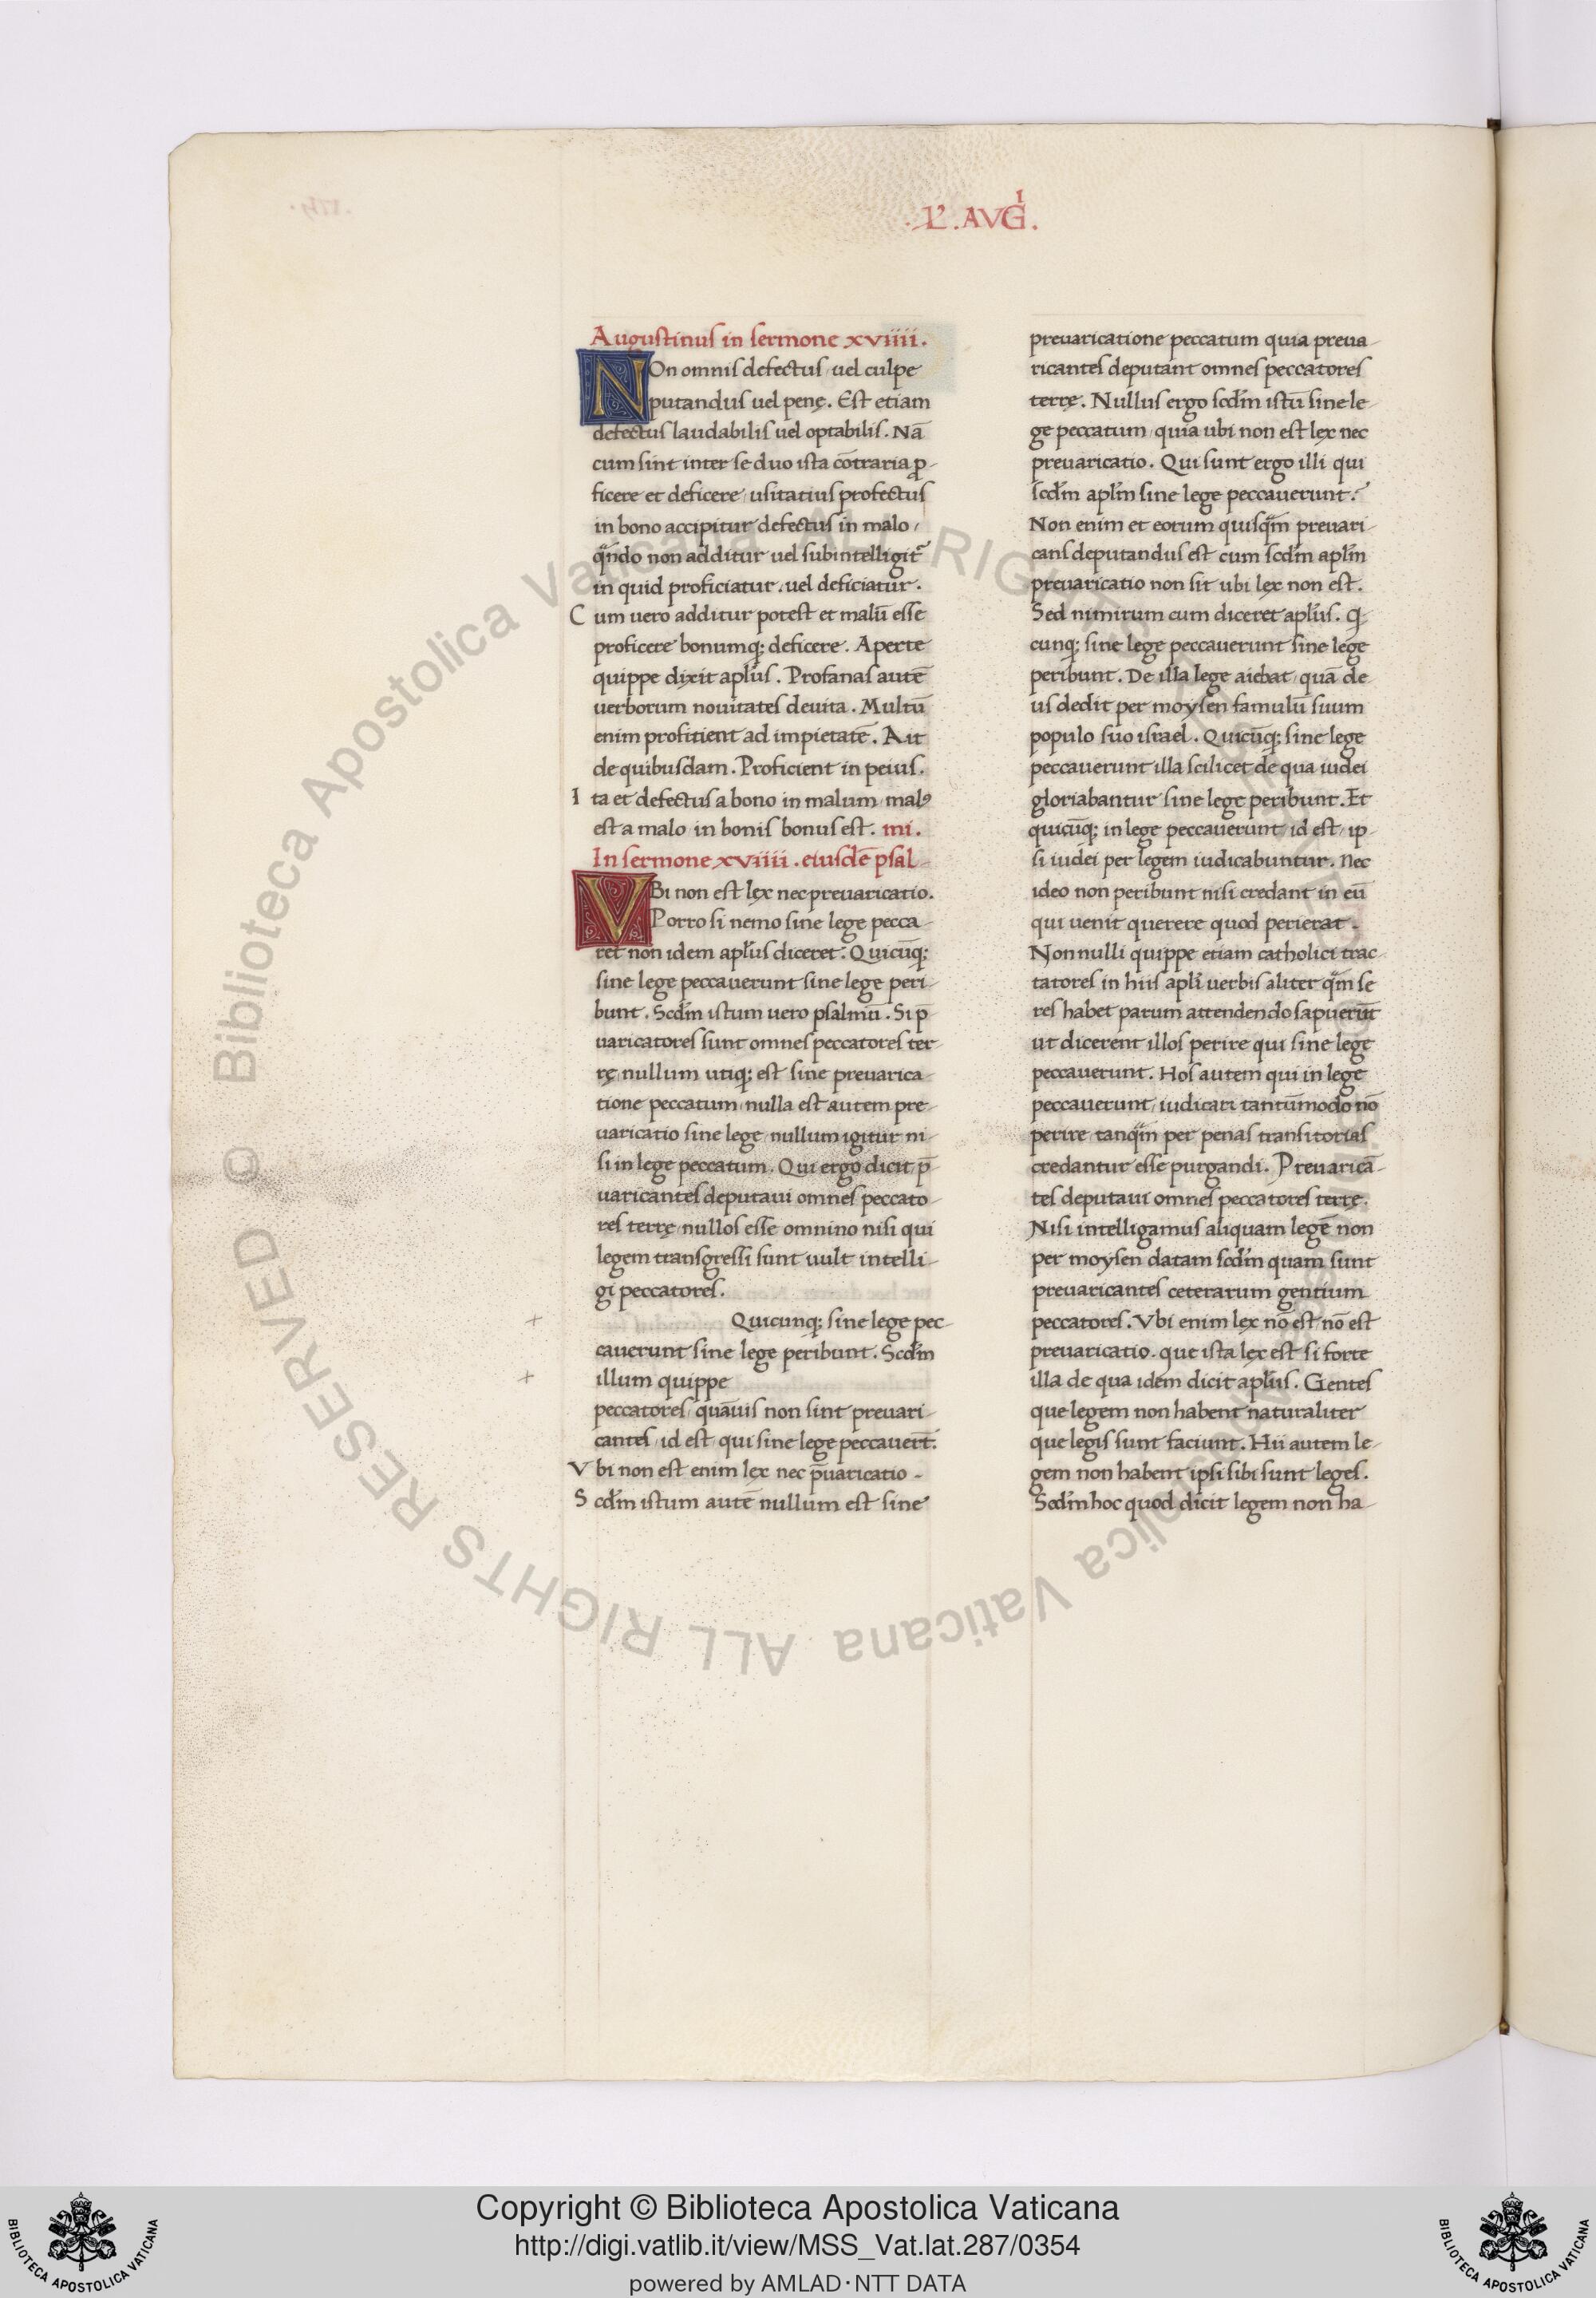 .L'. AVGI.
Augustinus in sermone xviiii.
NOn omnis defectus uel culpe
putandus uel penę. Est etiam
defectus laudabilis uel optabilis. Nā
cum sint inter se duo ista cōtraria ꝓ-
ficere et deficere, usitatius profectus
in bono accipitur defectus in malo,
qn̄do non additur uel subintelligit̄
in quid proficiatur, uel deficiatur.
Cum uero additur potest et malū esse
proficere bonumq; deficere. Aperte
quippe dixit apl̄us. Profanas autē
uerborum nouitates deuita. Multū
enim profitient ad impietatē. Ait
de quibusdam. Proficient in peius.
Ita et defectus a bono in malum malꝰ
est a malo in bonis bonus est. mi.
In sermone xviiii. eiusdē psal-
VBi non est lex nec preuaricatio.
Porro si nemo sine lege pecca-
ret non idem apl̄us diceret. Quicūq;
sine lege peccauerunt sine lege peri-
bunt. Scd̄m istum uero psalmū. Si p̄
uaricatores sunt omnes peccatores ter-
rę nullum utiq; est sine preuarica-
tione peccatum, nulla est autem pre-
uaricatio sine lege, nullum igitur ni-
si in lege peccatum. Qui ergo dicit p̄
uaricantes deputaui omnes peccato-
res terrę, nullos esse omnino nisi qui
legem transgressi sunt uult intelli-
gi peccatores.
+ Quicunq; sine lege pec-
cauerunt sine lege peribunt. Scd̄m
+ illum quippe
peccatores, quāuis non sint preuari-
cantes, id est, qui sine lege peccauert̄.
Vbi non est enim lex nec p̄uaricatio -
Scd̄m istum autē nullum est sine
preuaricatione peccatum quia preua-
ricantes deputant omnes peccatores
terrę. Nullus ergo scd̄m istū sine le-
ge peccatum, quia ubi non est lex nec
preuaricatio. Qui sunt ergo illi qui
scd̄m apl̄m sine lege peccauerunt?
Non enim et eorum quisqm̄ preuari-
cans deputandus est cum scd̄m apl̄m
preuaricatio non sit ubi lex non est.
Sed nimirum cum diceret apl̄us. Q-
cunq; sine lege peccauerunt sine lege
peribunt. De illa lege aiebat, quā de-
us dedit per moysen famulū suum
populo suo israel. Quicūq; sine lege
peccauerunt illa scilicet de qua iudei
gloriabantur sine lege peribunt. Et
quicūq; in lege peccauerunt, id est, ip-
si iudei per legem iudicabuntur. nec
ideo non peribunt nisi credant in eū
qui uenit querere quod perierat.
Non nulli quippe etiam catholici trac-
tatores in hiis apl̄i uerbis aliter qm̄ se
res habet parum attendendo sapuerūt
ut dicerent illos perire qui sine lege
peccauerunt. Hos autem qui in lege
peccauerunt, iudicari tantūmodo nō
perire, tanqm̄ per penas transitorias
credantur esse purgandi. Preuaricā-
tes deputaui omnes peccatores terrę.
Nisi intelligamus aliquam legē non
per moysen datam scd̄m quam sunt
preuaricantes ceterarum gentium
peccatores. Vbi enim lex nō est, nō est
preuaricatio. que ista lex est si forte
illa de qua idem dicit apl̄us. Gentes
que legem non habent naturaliter
que legis sunt faciunt. Hii autem le-
gem non habent ipsi sibi sunt leges.
Scd̄m hoc quod dicit legem non ha-
© Biblioteca Apostolica Vaticana ALL RIGHTS RESERVED
Copyright © Biblioteca Apostolica Vaticana
http://digi.vatlib.it/view/MSS_Vat.lat.287/0354
powered by AMLAD·NTT DATA
BIBLIOTECA APOSTOLICA VATICANA
BIBLIOTECA APOSTOLICA VATICANA